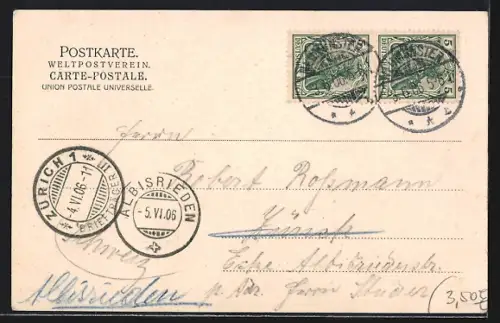 POSTKARTE.
WELTPOSTVEREIN.
CARTE-POSTALE.
UNION POSTALE UNIVERSELLE.
5 5
ZÜRICH 1
-4.VI.06.-11
BRIEFTRÄGER
ALBISRIEDEN
-5.VI.06
Herrn
Robert Roßmann
Zürich
Ecke Albisriederstr.
Schweiz
Albisrieden p. Adr. Herrn Studer
3,50